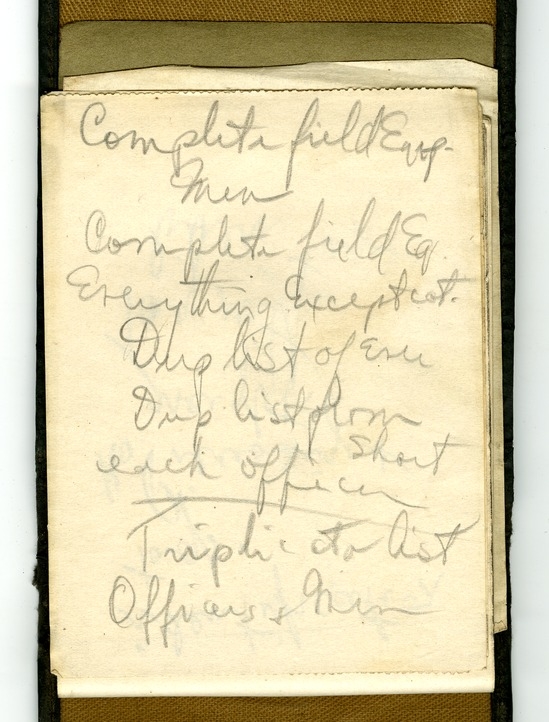 Complete field Equip.
Men
Complete field Eq
Everything except cot.
Dup list of
Dup list from
each officer Short
Triplicate list
Officers & Men